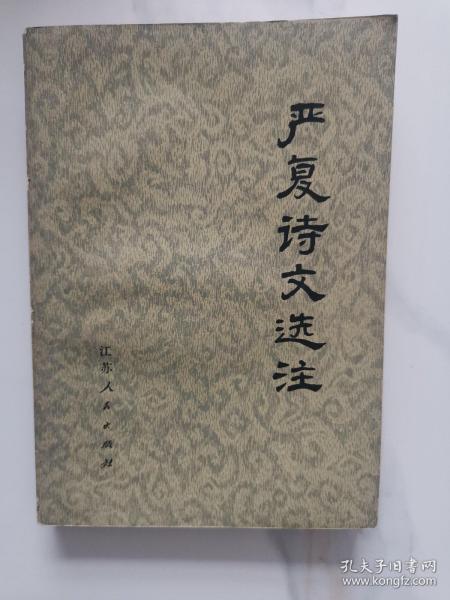 严复诗文选注
江苏人民出版社
孔夫子旧书网
www.kongfz.com